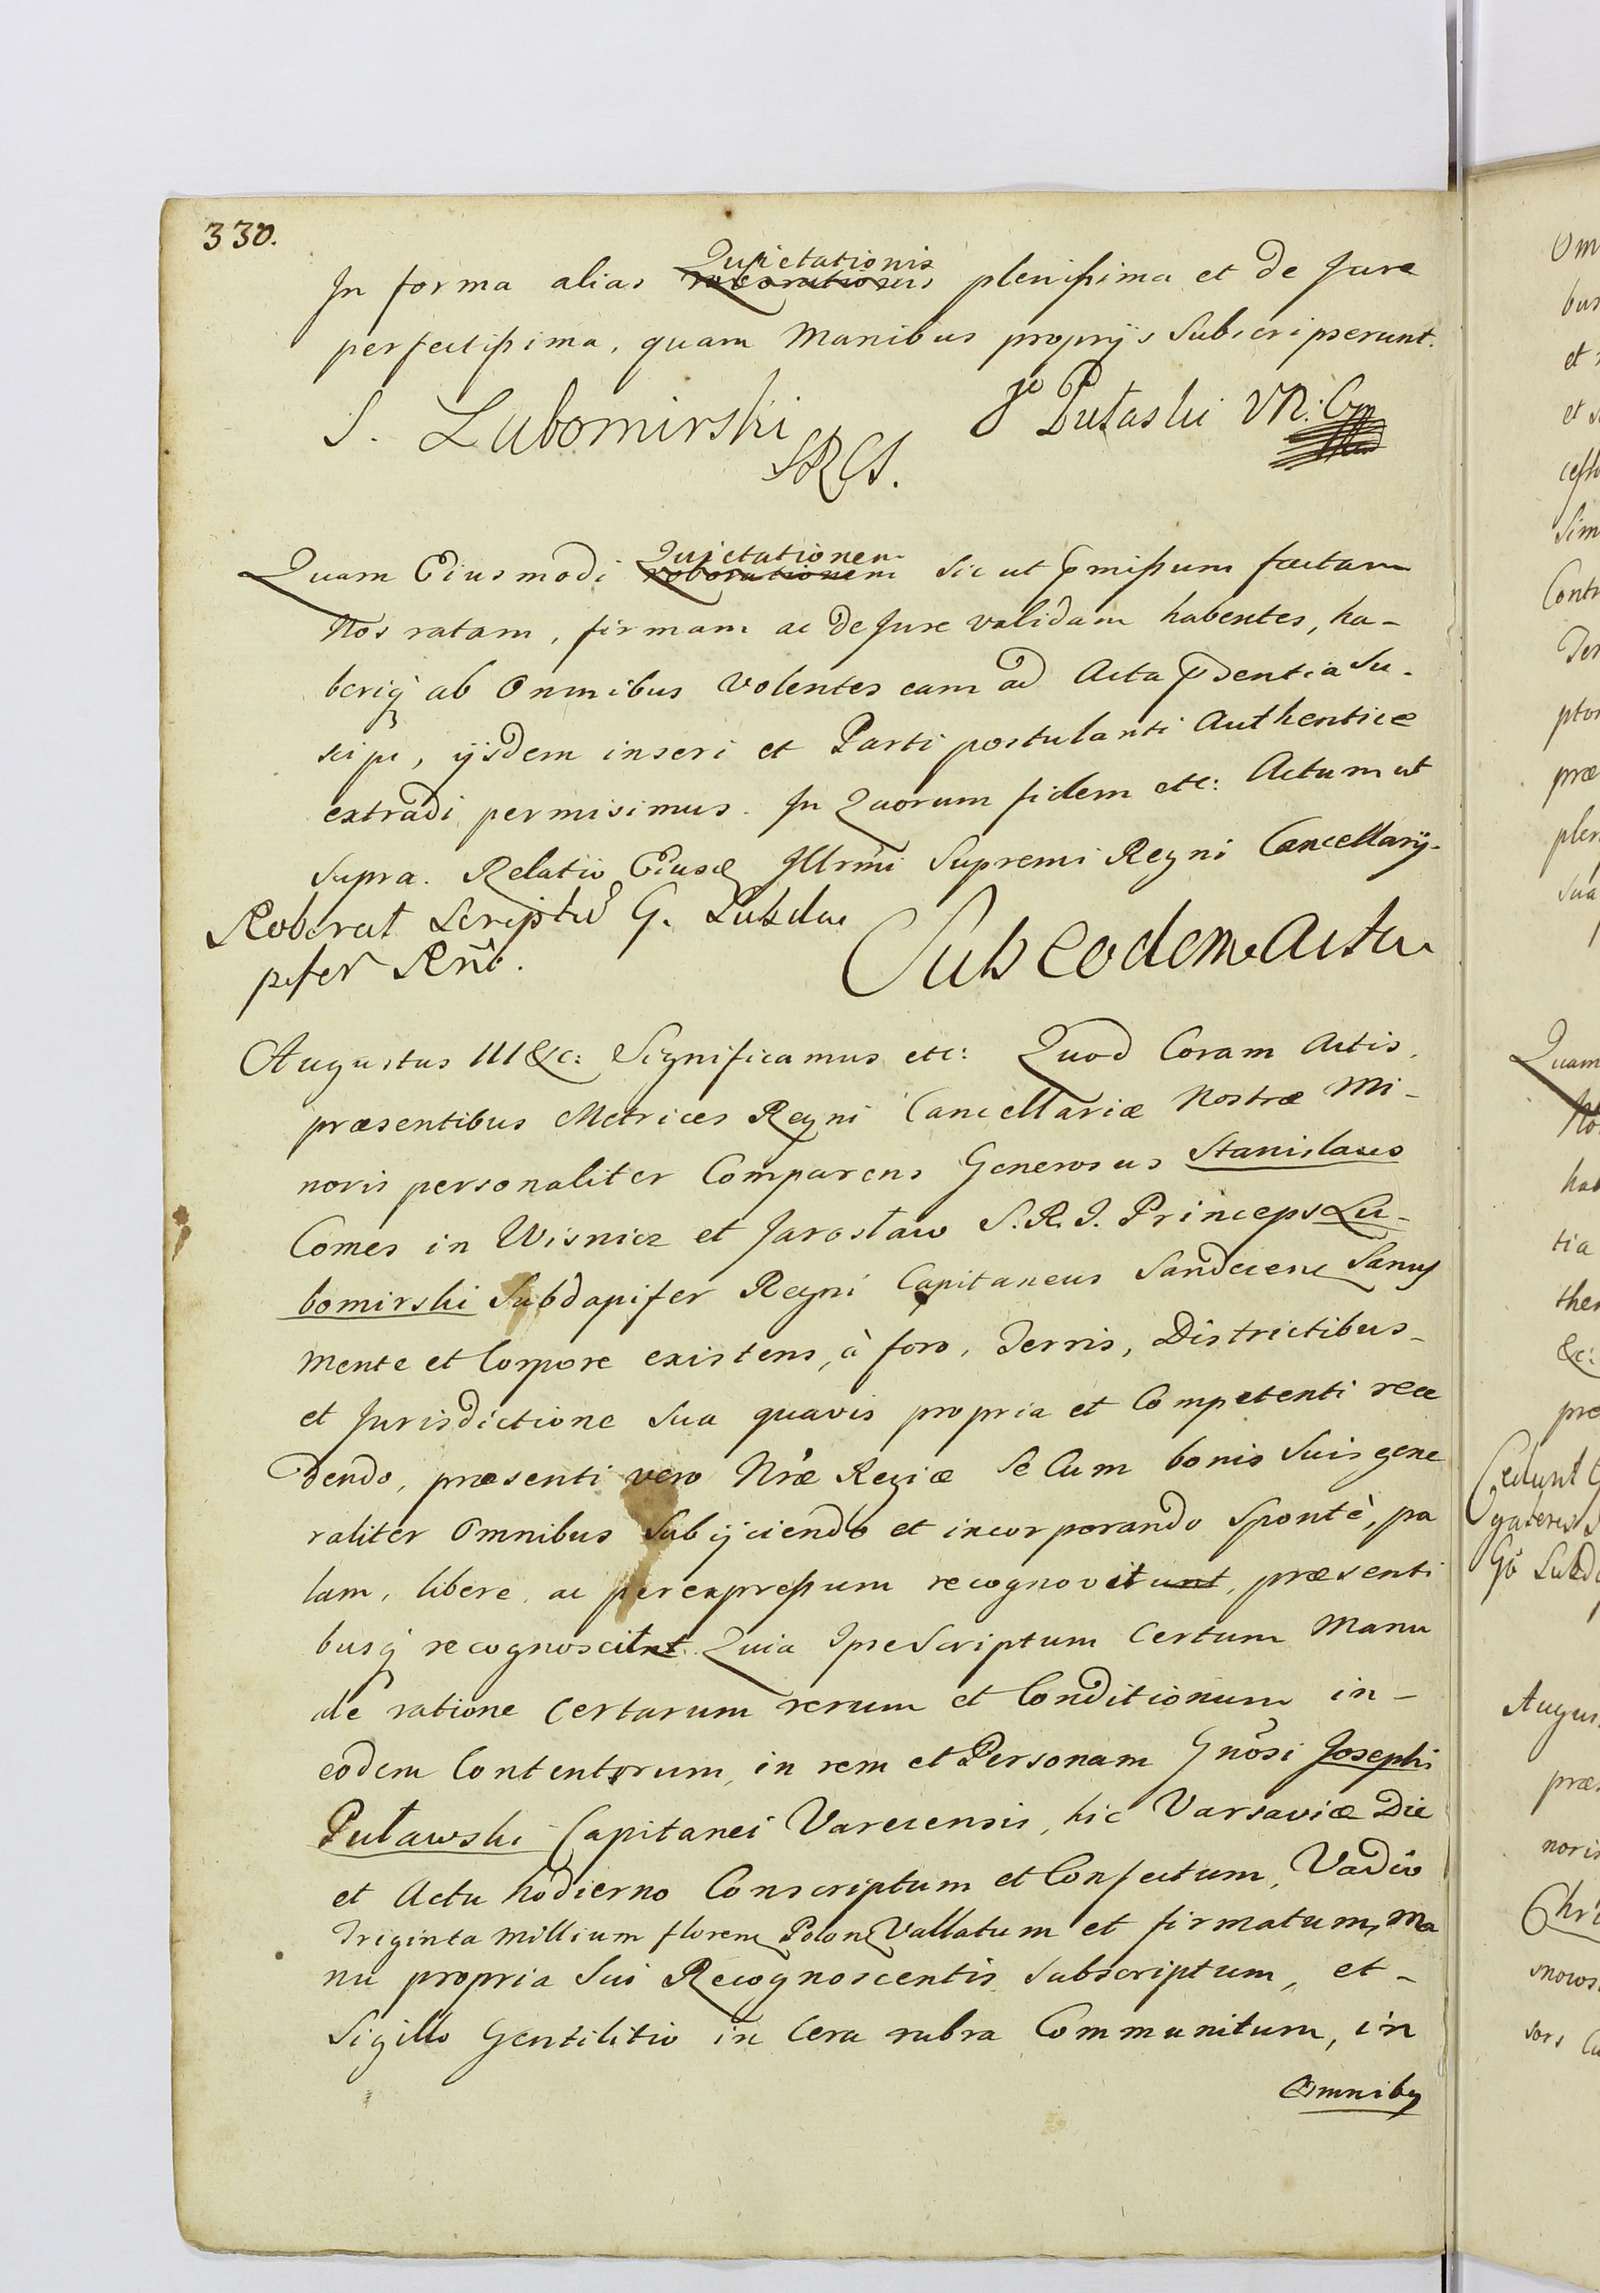 330.
In forma alias Quietationis roborationis plenißima et de Jure
perfectißima, quam Manibus proprijs Subscripserunt.
S. Lubomirski
SRCS.
Jo Pułaski VR:
Quam Eiusmodi Quietationem roborationem sic ut pmißum factam
Nos ratam, firmam ac de Jure validam habentes, ha-
beriq ab Omnibus Volentes eam ad Acta pdentia Su-
scipi, ijsdem inseri et Parti postulanti Authentice
extradi permisimus. In Quorum fidem etc: Actum ut
Supra. Relatio Eiusd Illrmi Supremi Regni Cancellarij.
Roborat Scriptũ G. Subda
pifer Rni.
Sub eodem Actu
Augustus III &c: Significamus etc: Quod Coram Actis
præsentibus Metrices Regni Cancellariæ Nostræ Mi-
noris personaliter Comparens Generosus Stanislaus
Comes in Wisnicz et Jarosław S.R.I. Princeps Lu-
bomirski Subdapifer Regni Capitaneus Sandecen Sanus
mente et Corpore existens, à foro, Terris, Districtibus
et Jurisdictione Sua quavis propria et Competenti rece
dendo, præsenti vero Nræ Regiæ Se Cum bonis Suis gene
raliter Omnibus Subijciendo et incorporando Spontè, pa
lam, libere, ac per expreßum recognovit unt, præsenti
busq recognoscit nt Quia Ipse Scriptum Certum Manu
de ratione Certarum rerum et Conditionum in-
eodem Contentorum, in rem et Personam Gnosi Josephi
Puławski Capitanei Varecensis, hic Varsaviæ Die
et Actu hodierno Conscriptum et Confectum, Vadio
Triginta Millium floren Polon Vallatum et firmatum, Ma
nu propria Sui Recognoscentis Subscriptum, et-
Sigillo Gentilitio in Cera rubra Communitum, in
Omnibq